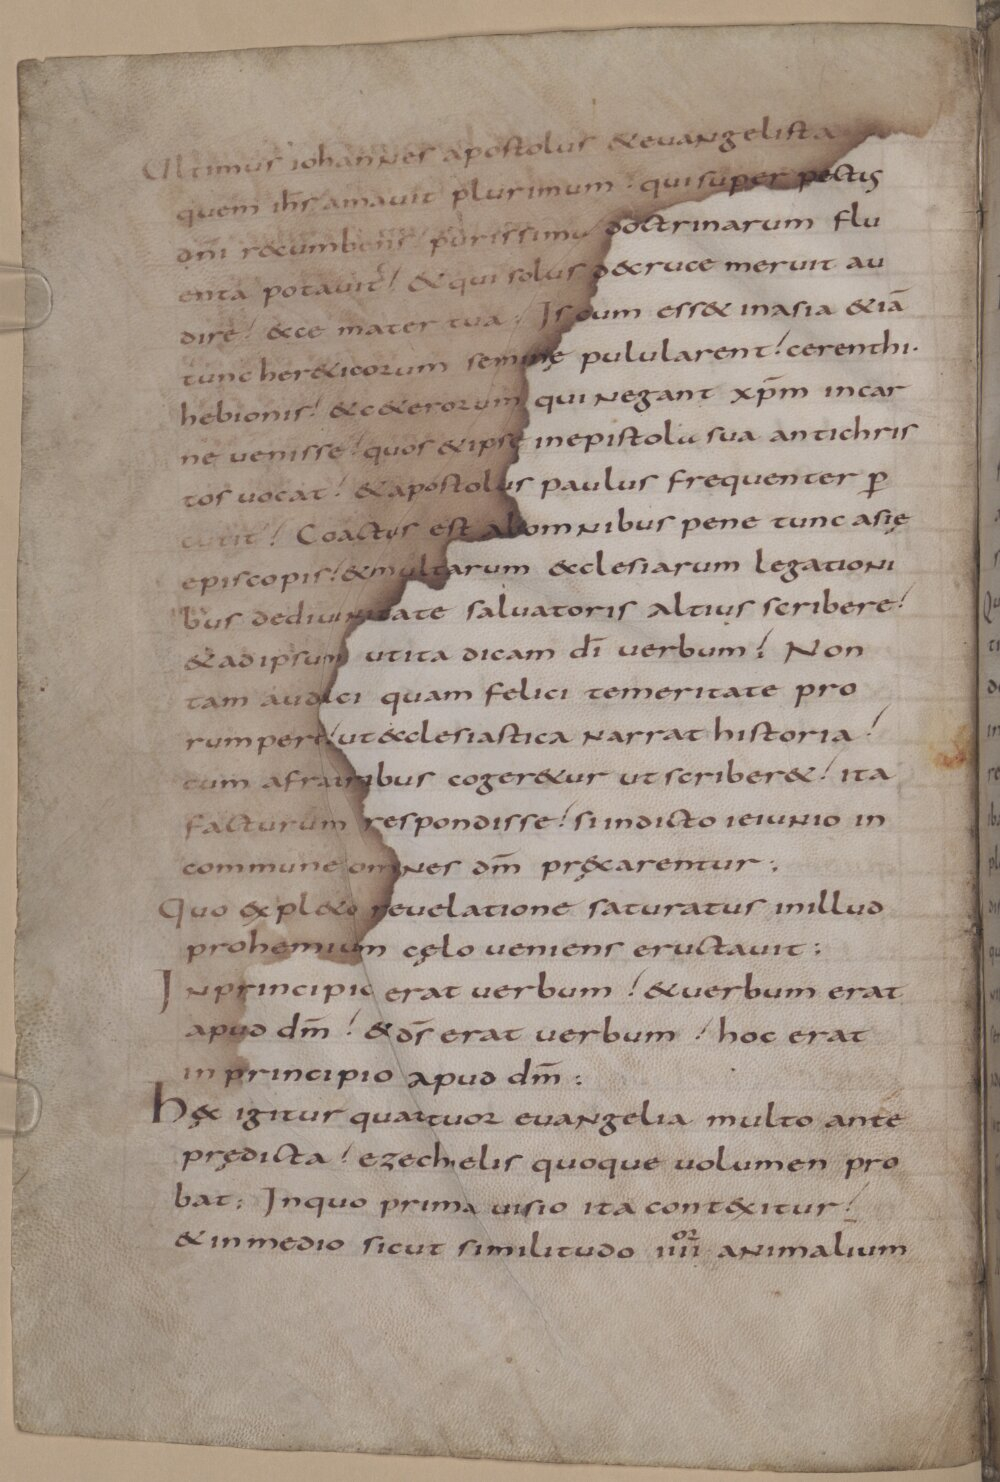 Ultimus iohannes apostolus &euangelista
quem ih̅s amauit plurimum quisuper pectus
dn̅i recumbens purissima doctrinarum flu
enta potauit &qui solus decruce meruit au
dire &ce mater tua. Is cum ess& inasia &ia̅
tunc her&icorum semine pulularent cerenthi.
hebionis &c&erorum qui negant xp̅m incar
ne uenisse quos &ipse inepistola sua antichris
tos uocat &apostolus paulus frequenter p̲
cutit Coactus est abomnibus pene tunc asię
episcopis &multarum &clesiarum legationi
bus dediuinitate saluatoris altius scribere
&adipsum utita dicam di̅ uerbum; Non
tam audaci quam felici temeritate pro
rumpere ut&clesiastica narrat historia
cum afratribus coger&ur utscriber& ita
facturum respondisse siindicto ieiunio in
commune omnes dm̅ pręcarentur;
Quo expl&o reuelatione saturatus inillud
prohemium cęlo ueniens eructauit;
Inprincipio erat uerbum &uerbum erat
apud dm̅ &ds̅ erat uerbum hoc erat
inprincipio apud dm̅;
hęc igitur quattuor euangelia multo ante
prędicta ezechielis quoque uolumen pro
bat; Inquo prima uisio ita contexitur
&inmedio sicut similitudo iiii^or animalium